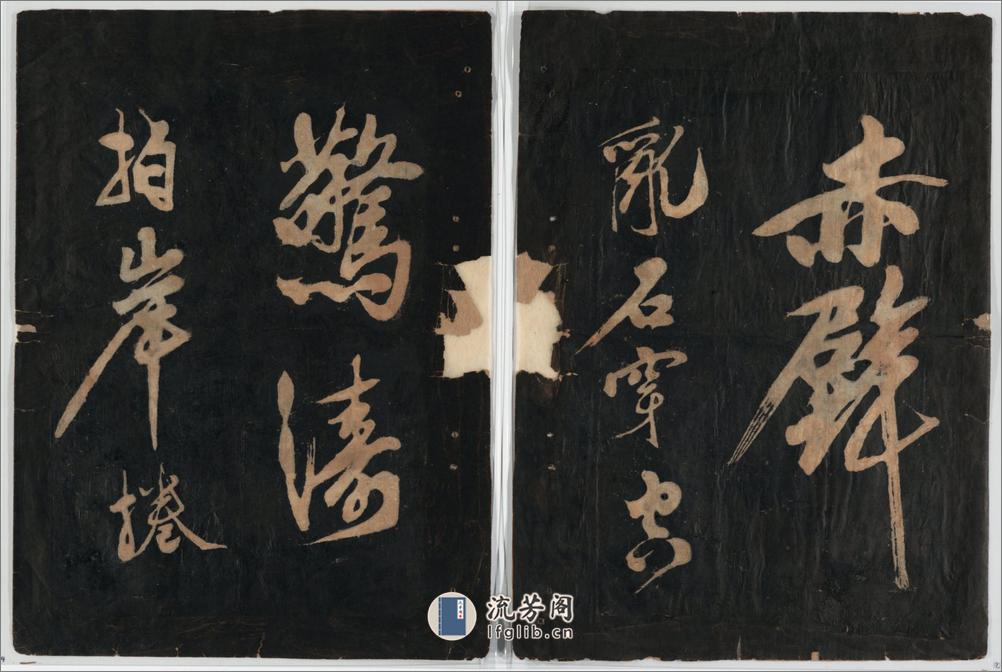 赤壁
亂石穿空
驚濤
拍岸捲
流芳阁
lfglib.cn